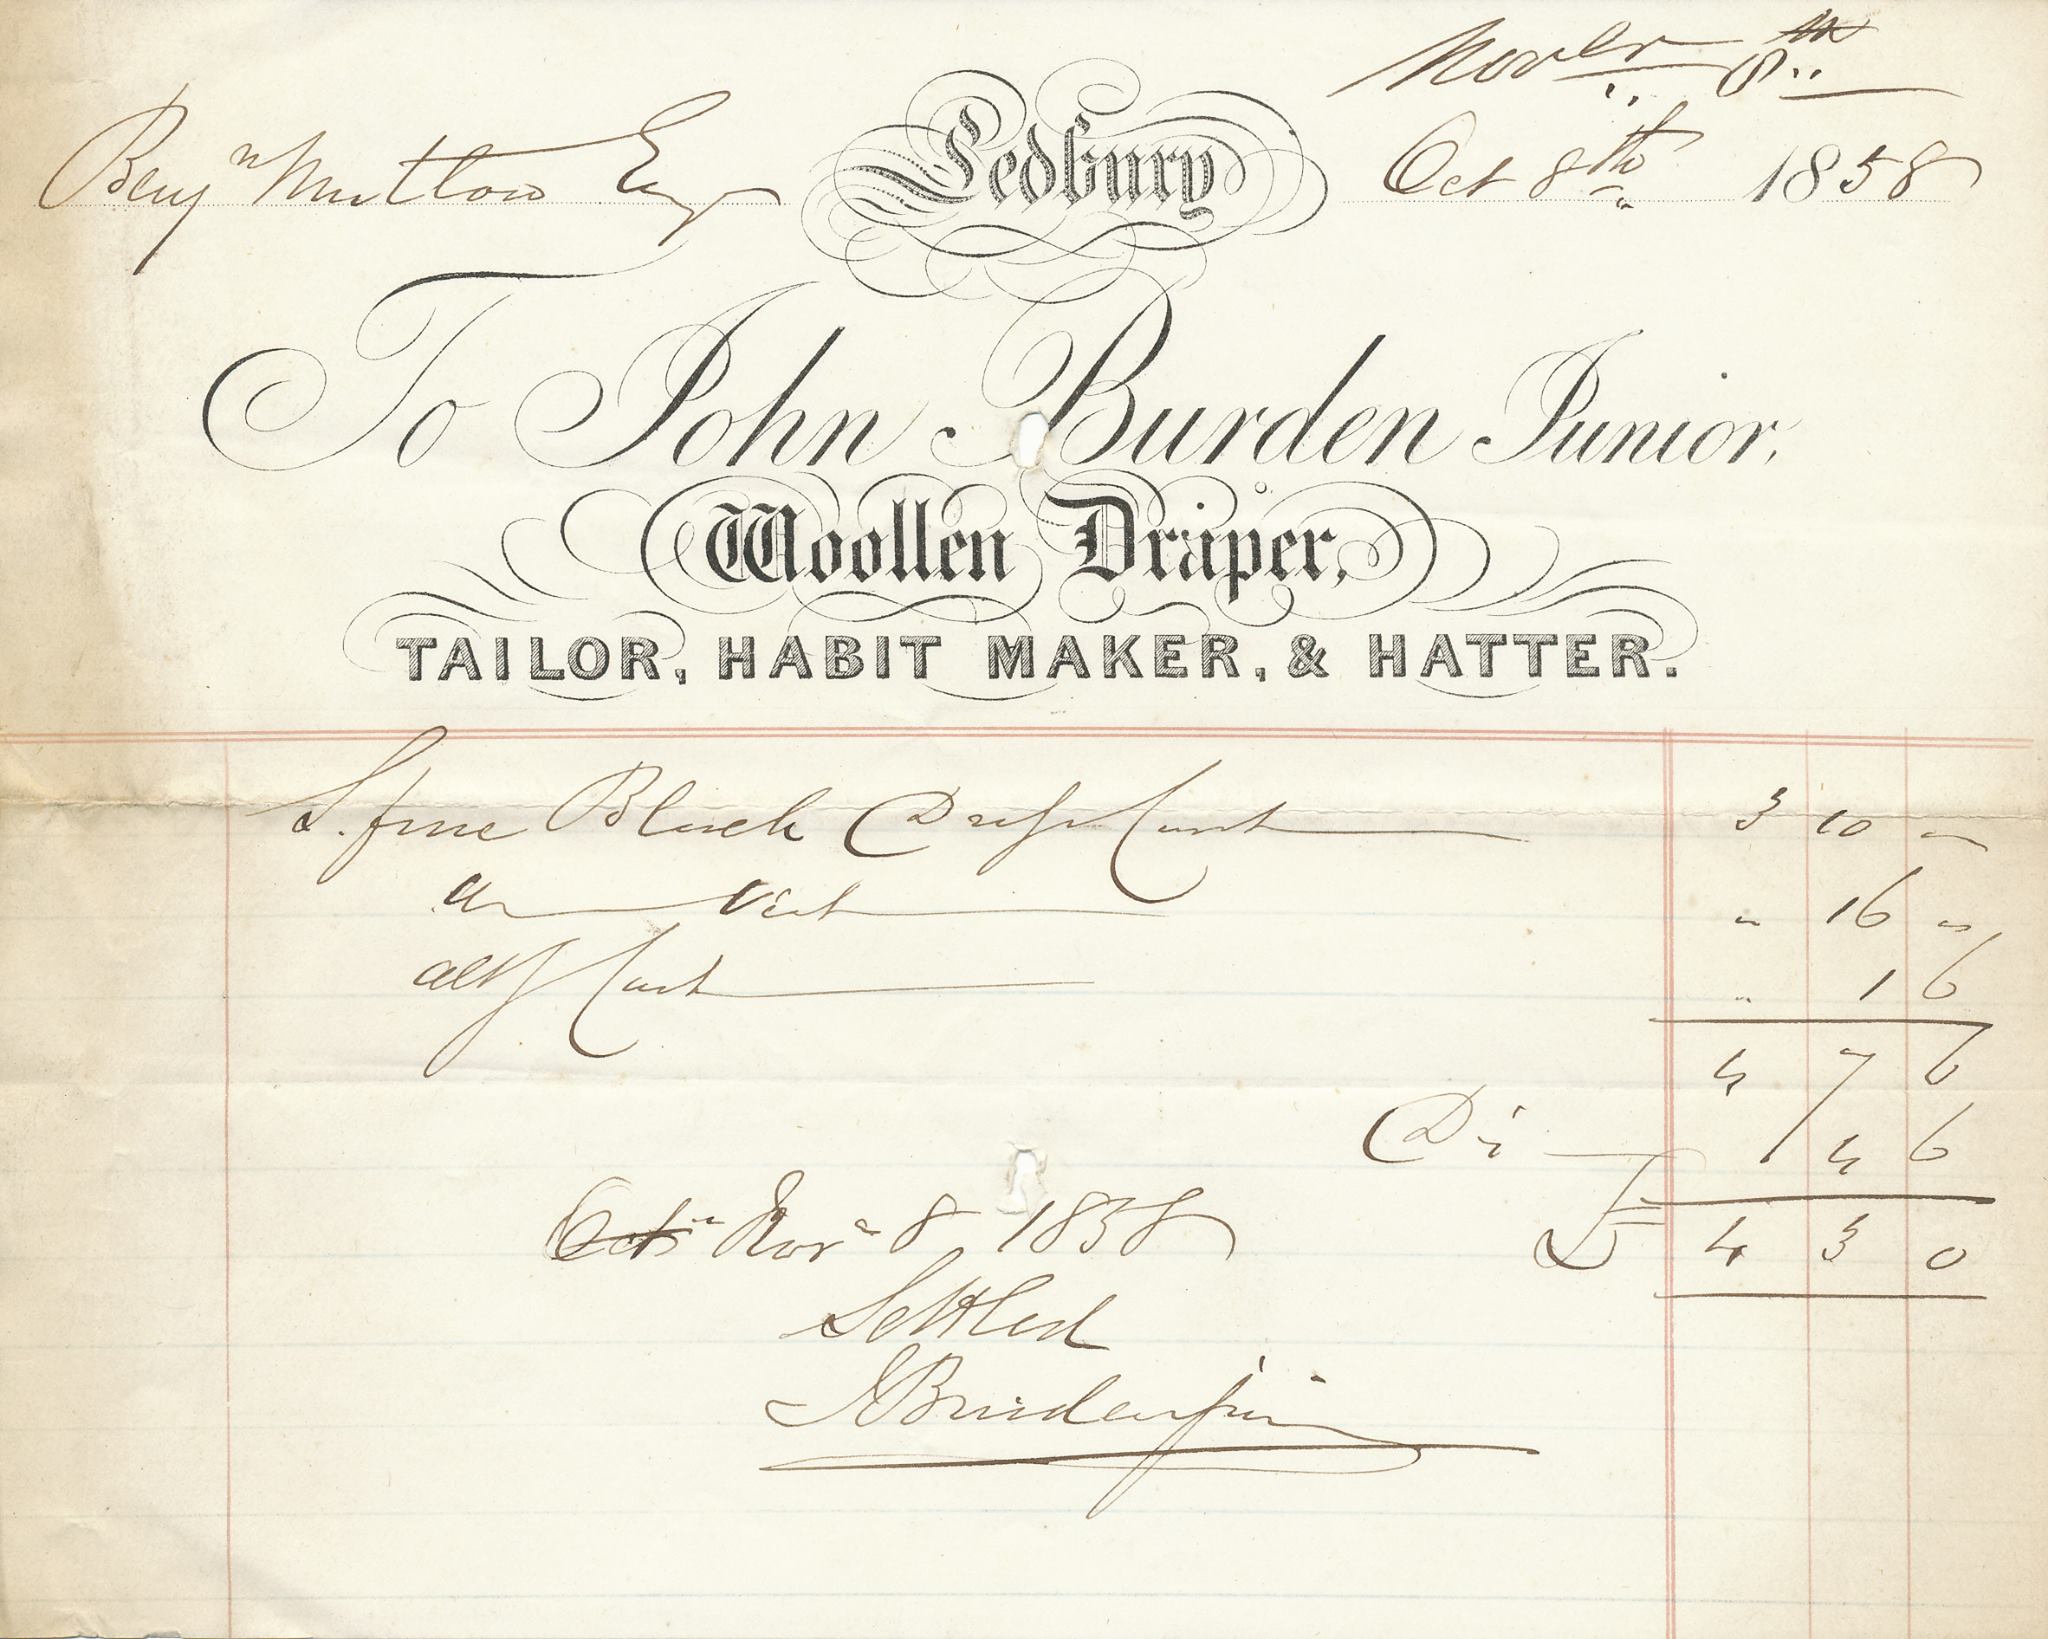 Novber 8th
Benjn Mutlow Esq Ledbury Oct 8th 1858
To John Burden Junior,
Woollen Draper,
TAILOR, HABIT MAKER, & HATTER.
S. fine Black Dress Coat 3 10 "
Vest " 16 "
altg Coat " 1 6
4 7 6
Dis 4 6
£ 4 3 0
Oct Novr 8 1858
Settled
J Burden Junr